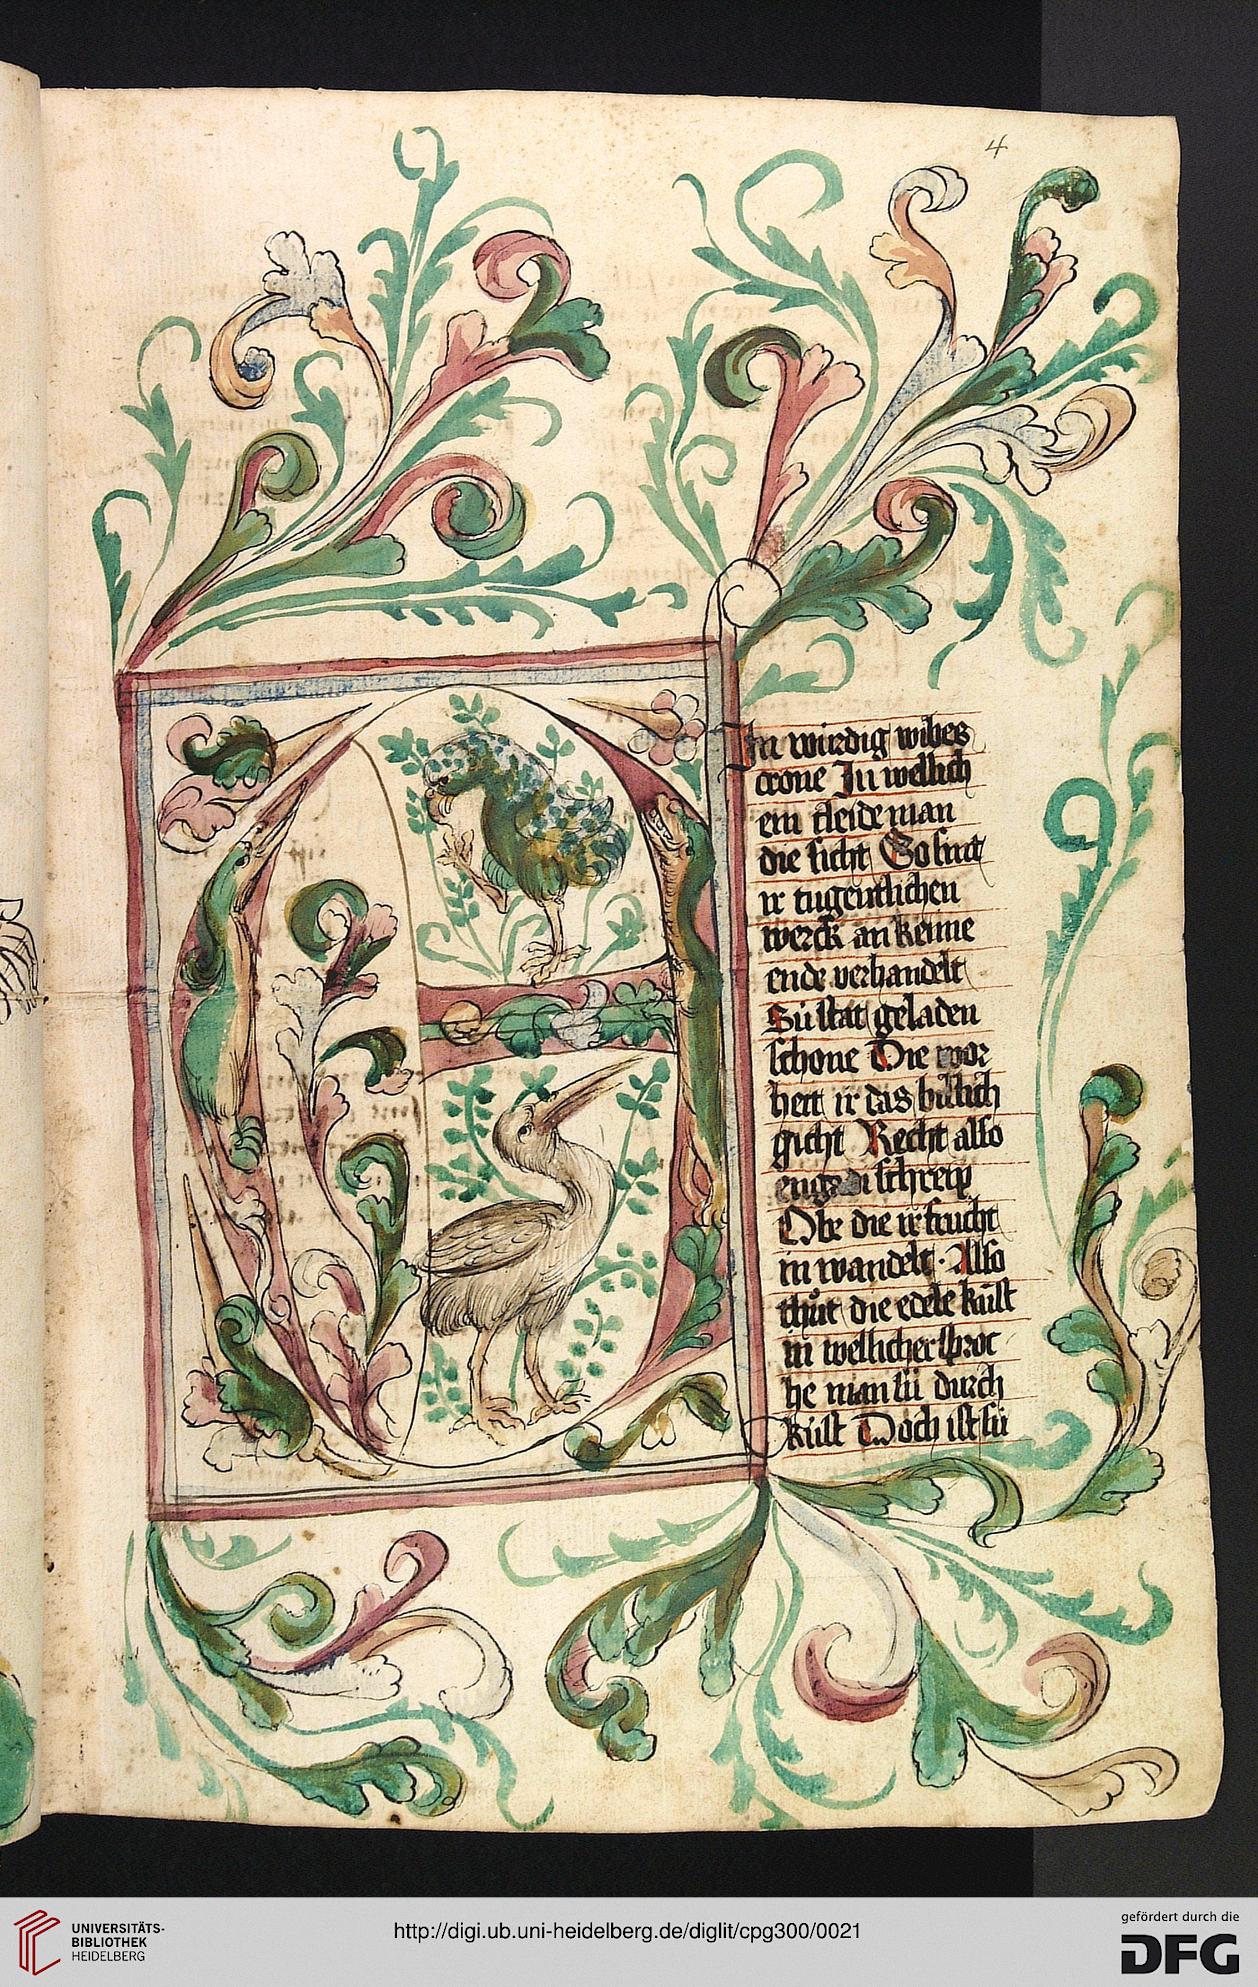 4
In wirdig wibes
crone In wellich
em cleide man
die sicht So sint
ir tugentlichen
werck an kenne
ende verhandelt
Sú statt geladen
schone Die wor
heit ir das billich
gicht Recht also
schreip
Obe die ir frucht
in wandelt · Also
thůt die edele kúst
in wellicher sproc
he man sú durch
kúst Doch ist sú
UNIVERSITÄTS-
BIBLIOTHEK
HEIDELBERG
http://digi.ub.uni-heidelberg.de/diglit/cpg300/0021
gefördert durch die
DFG